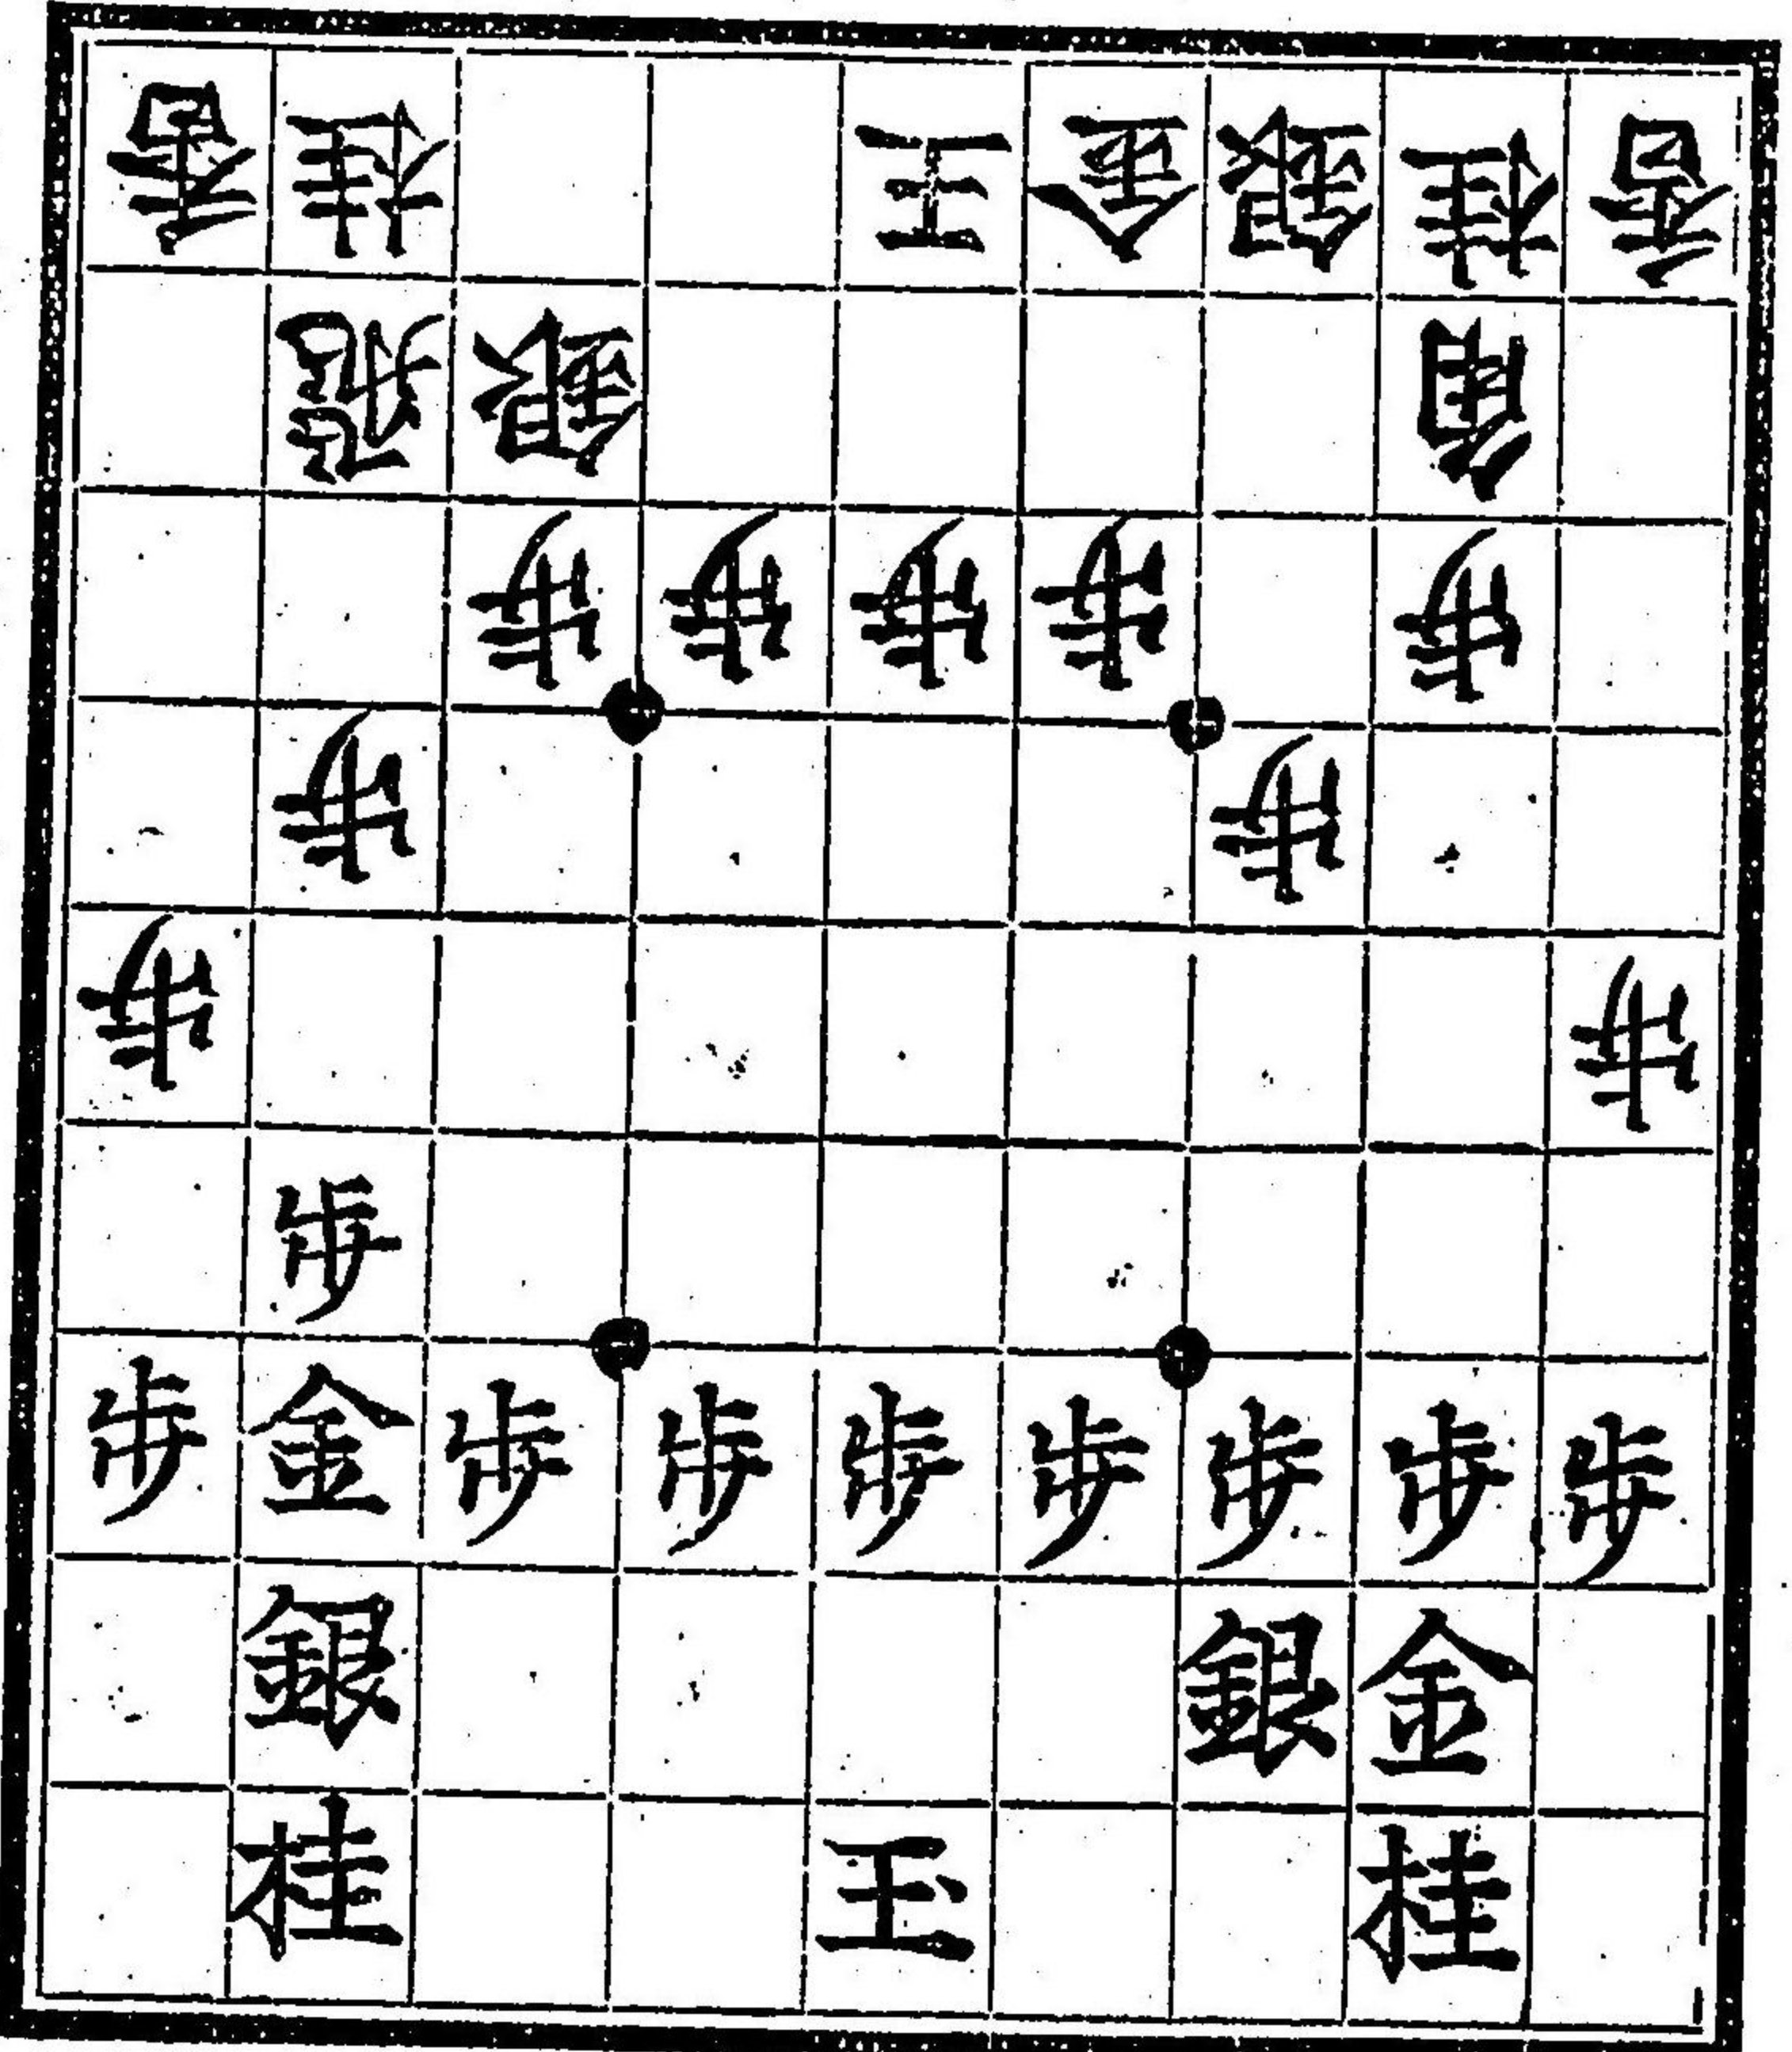 香桂王金銀桂香
飛銀角
歩歩歩歩歩
歩歩
歩歩
歩
歩金歩歩歩歩歩歩歩
銀銀金
桂玉桂